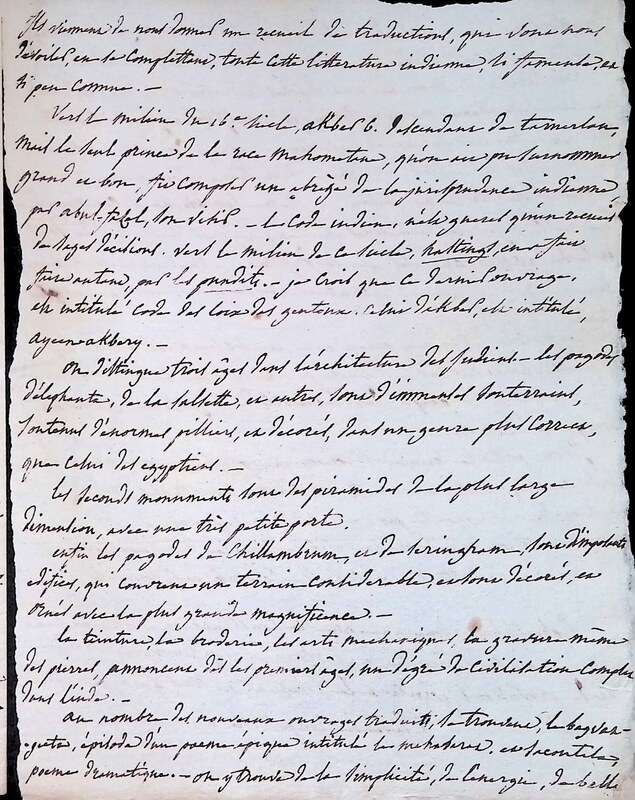 Ils viennent de nous donner un recueil de traductions, qui vont nous
dévoiler, en se complettant, toute cette litterature indienne, si fameuse, et
si peu connue. —
Vers le milieu du 16e siecle, akber 6. descendant de tamerlan,
mais le seul prince de la race mahometane, qu'on ait pu surnommer
grand et bon, fit composer un abrégé de la jurisprudence indienne
par abul-fazel, son visir. — le code indien, n'est gueres qu'un recueil
de sages décisions. vers le milieu de ce siecle, hastings, en a fait
faire autant, par les pundits. — je crois que ce dernier ouvrage,
est intitulé code des loix des gentoux. celui d'ekber, est intitulé,
ayeen akbery. —
On distingue trois âges dans l'architecture des indiens — les pagodes
d'elephante, de la salsette, et autres, sont d'immenses souterrains,
soutenus d'énormes pilliers, et décorés, dans un genre plus correct,
que celui des egyptiens. —
les seconds monuments sont des piramides de la plus large
dimension, avec une très petite porte.
enfin les pagodes de Chillambrum, et de seringham, sont d'imposants
edifices, qui couvrent un terrain considerable, et sont décorés, et
ornés avec la plus grande magnificence. —
la teinture, la broderie, les arts mechaniques, la gravure même
des pierres, annoncent dès les premiers âges, un degré de civilisation complet
dans l'inde. —
au nombre des nouveaux ouvrages traduits, se trouvent, le bagvat-
-geeta, épisode d'un poeme épique intitulé le mahabarat, et sacontala,
poeme dramatique. — on y trouve de la simplicité, de l'energie, de belles